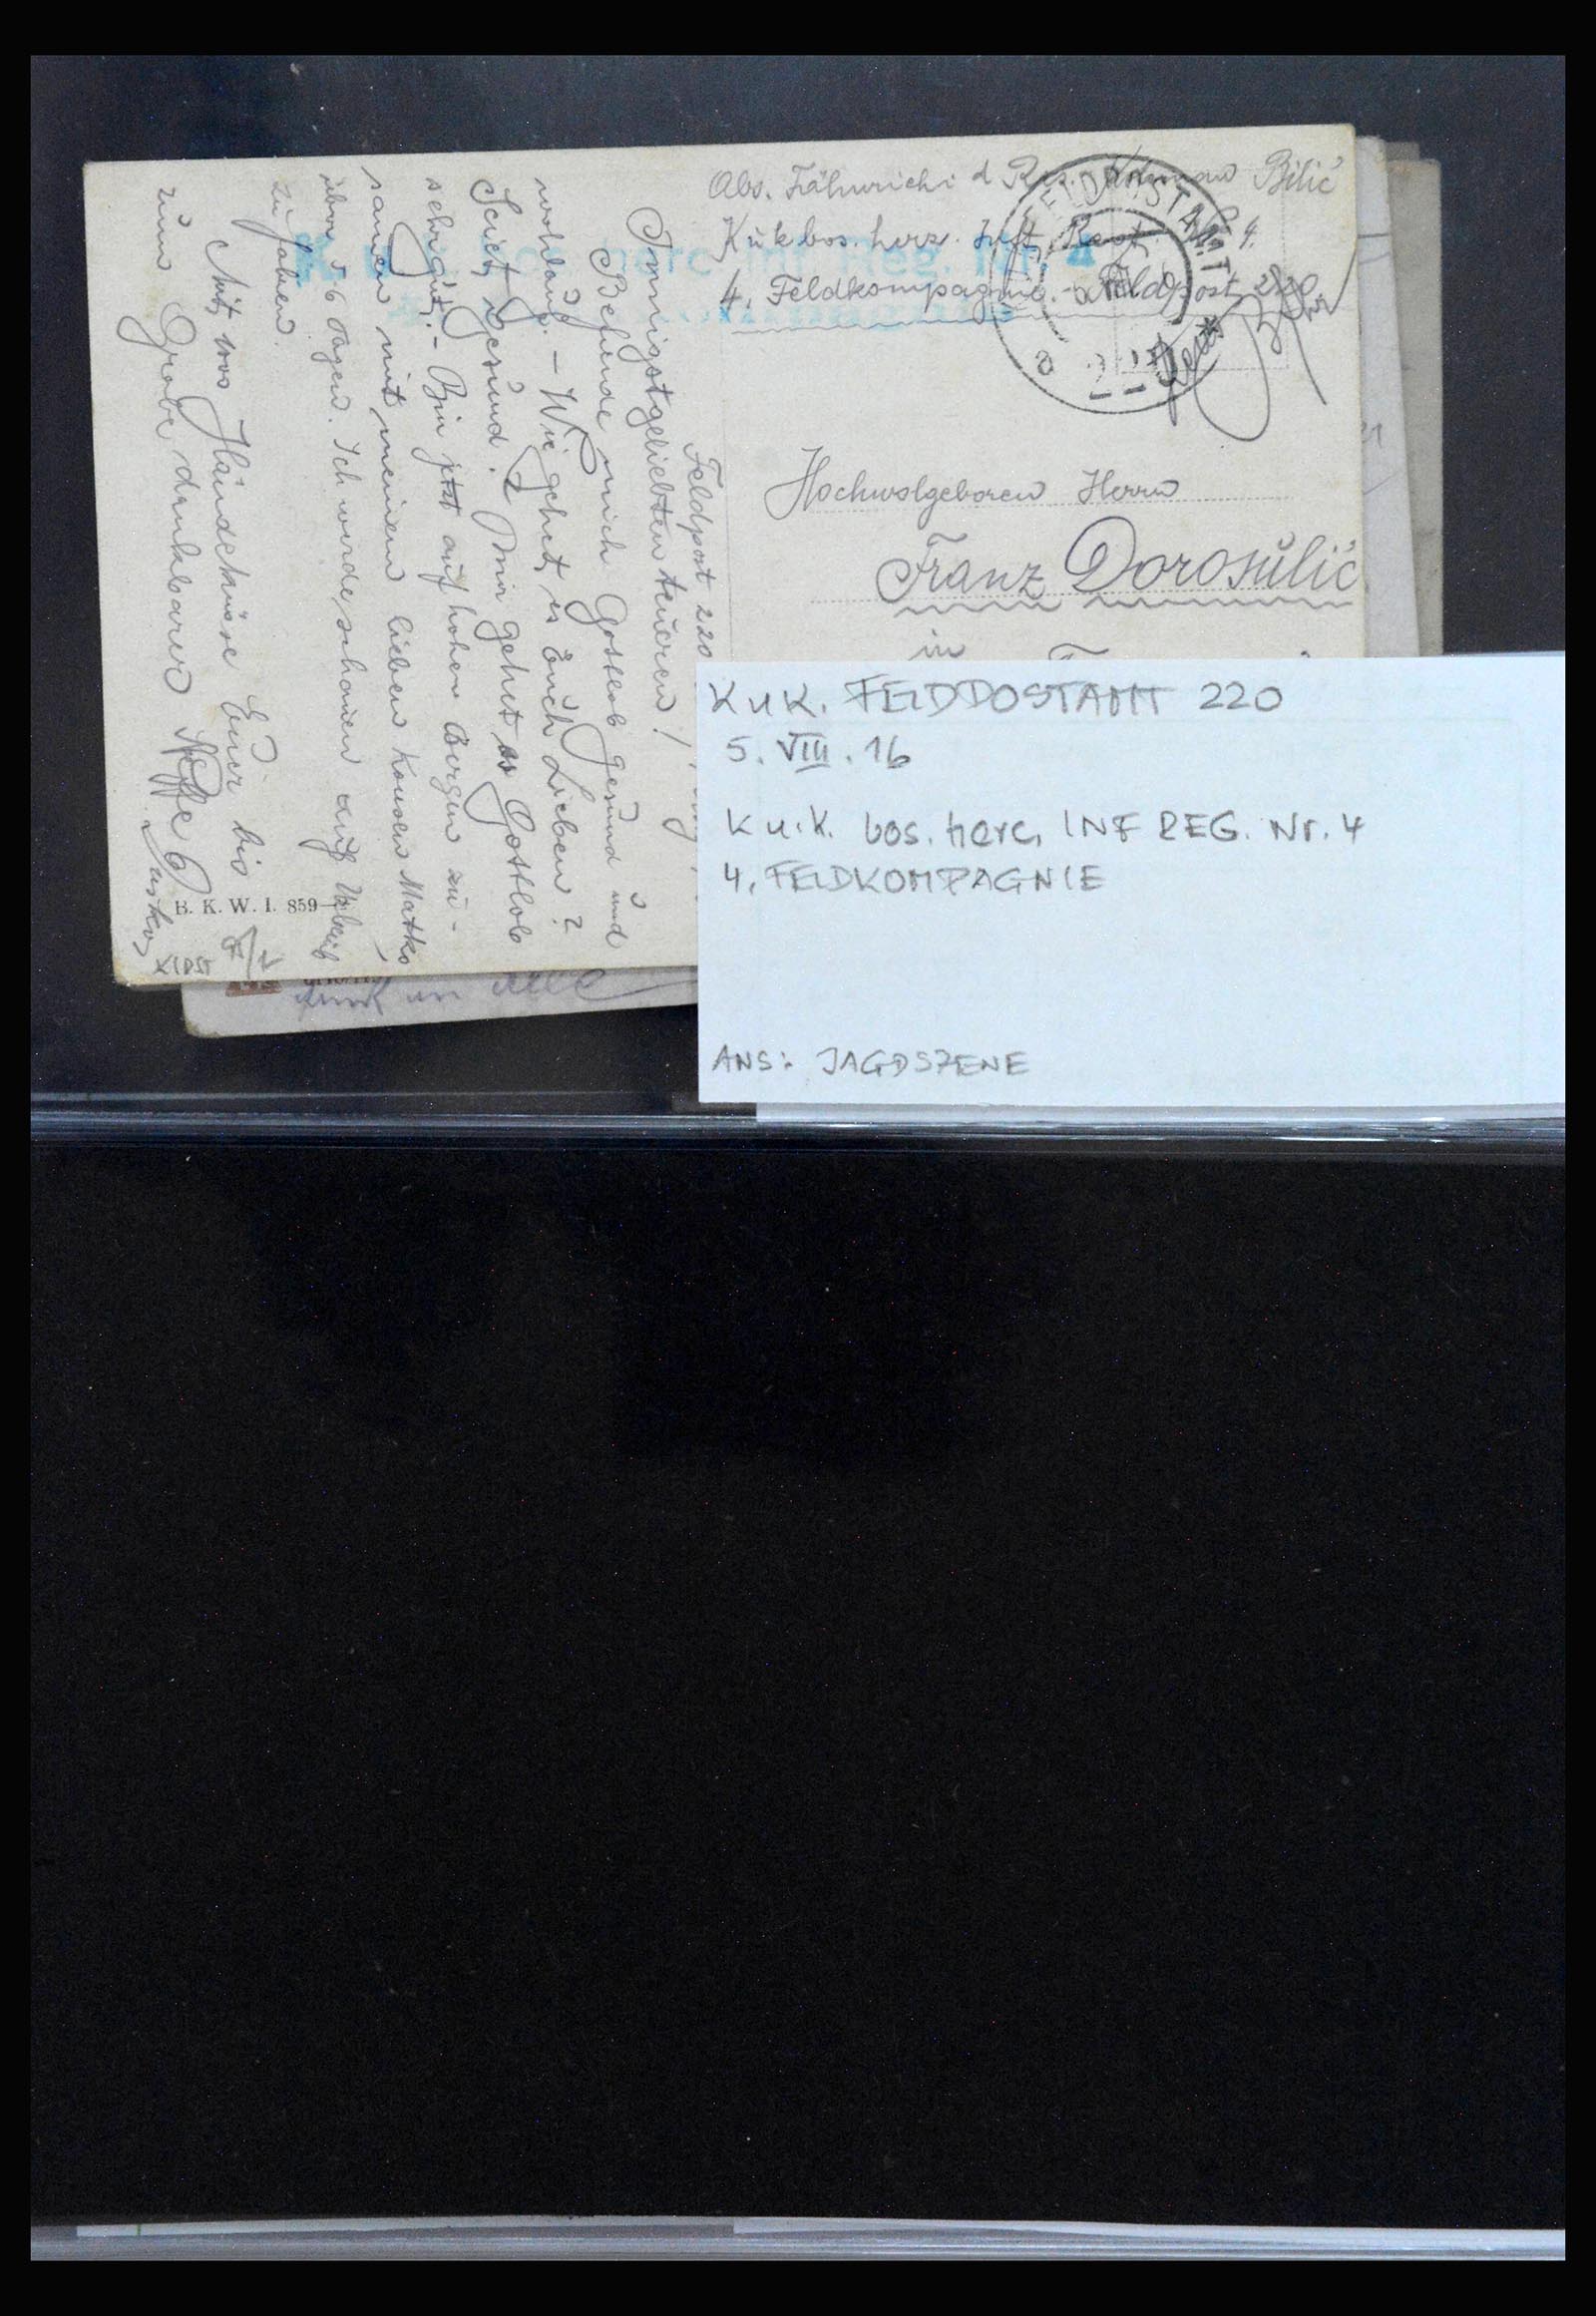 Abs. Fähnrich i. d. Res. Bilić
K u k bos. herz. Inft. Regt. Nr. 4.
4. Feldkompagnie. - Feldpost 220
FELDPOSTAMT
herc Inf Reg. Nr. 4
Hochwolgeboren Herrn
Franz Dorosulić
in
Feldpost 220
Innigstgeliebten teueren!
Befinde mich Gottlob gesund und
wohlauf. - Wie gehet es Euch Lieben?
Seiet gesund. Mir gehet es Gottlob
sehr gut. - Bin jetzt auf hohen Bergen zu-
samen mit meinem lieben Matko
5-6 Tagen. Ich werde schauen auf Urlaub
zu fahren.
Mit Händeküsse Euer bis
zum Grabe dankbarer Neffe
B. K. W. I. 859
K u K. FELDPOSTAMT 220
5. VIII. 16
K u. K. bos. herc. INF REG. Nr. 4
4. FELDKOMPAGNIE
ANS: JAGDSZENE